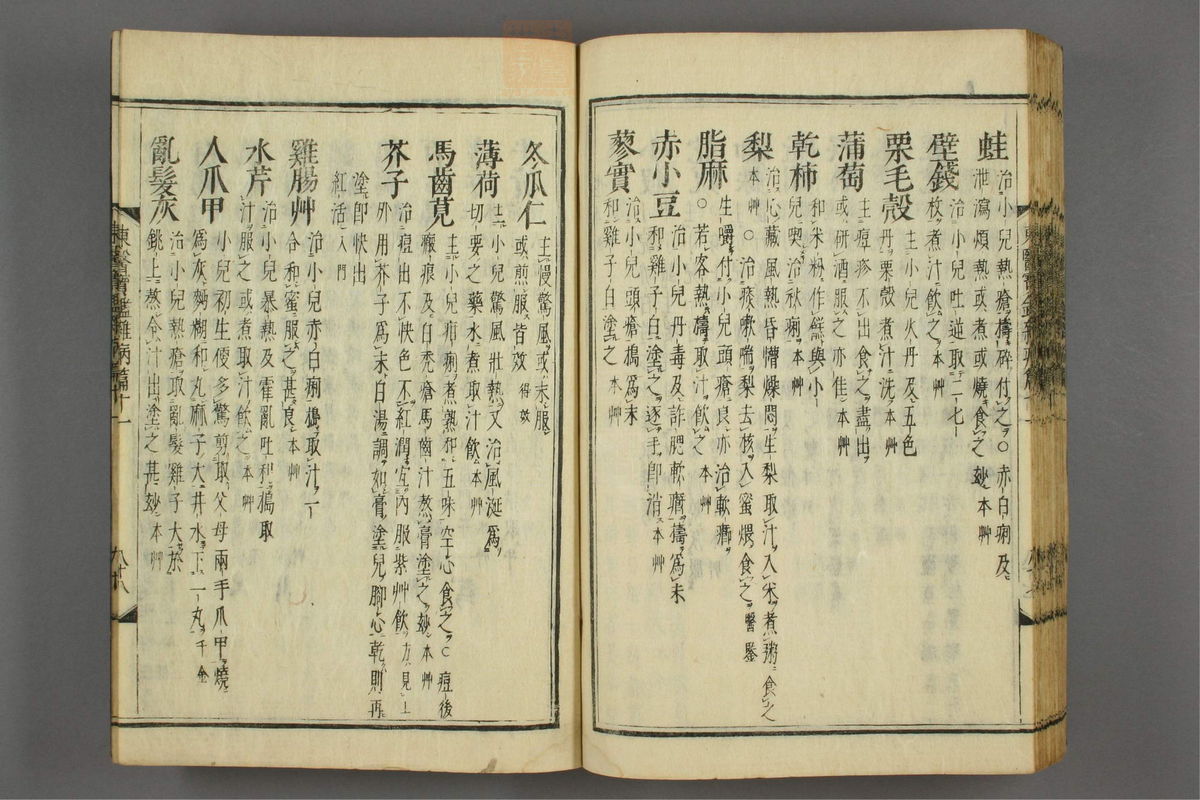 蛙 治小兒熱瘡擣碎付之○赤白痢及
泄瀉煩熱或煮或燒食之玅本艸
壁錢 治小兒吐逆取二七
枚煮汁飮之本艸
栗毛殼 主小兒火丹及五色
丹栗殼煮汁洗本艸
蒲萄 主痘疹不出食之盡出
或研酒服之亦佳本艸
乾柿 和米粉作餻與小
兒喫治秋痢本艸
梨 治心藏風熱昏懵燥悶生梨取汁入米煮粥食之
本艸○治痰嗽喘梨去核入蜜煨食之醫鑒
脂麻 生嚼付小兒頭瘡良亦治軟癤
○若客熱擣取汁飮之本艸
赤小豆 治小兒丹毒及詐肥軟癤擣爲末
和雞子白塗之逐手卽消本艸
蓼實 治小兒頭瘡擣爲末
和雞子白塗之本艸
冬瓜仁 主慢驚風或末服
或煎服皆效得效
薄荷 主小兒驚風壯熱又治風涎爲
切要之藥水煮取汁飮本艸
馬齒莧 主小兒疳痢煮熟和五味空心食之○痘後
瘢痕及白禿瘡馬齒汁熬膏塗之玅本艸
芥子 治痘出不快色不紅潤宜內服紫艸飮方見上
外用芥子爲末白湯調如膏塗兒脚心乾則再
塗卽快出
紅活入門
雞腸艸 治小兒赤白痢擣取汁一
合和蜜服之甚良本艸
水芹 治小兒暴熱及霍亂吐和擣取
汁服之或煮取汁飮之本艸
人爪甲 小兒初生便多驚剪取父母兩手爪甲燒
爲灰麪糊和丸麻子大井水下一丸千金
亂髮灰 治小兒熱瘡取亂髮雞子大於
銚上熬令汁出塗之甚玅本艸
東醫寶鑑雜病篇十一
八十八